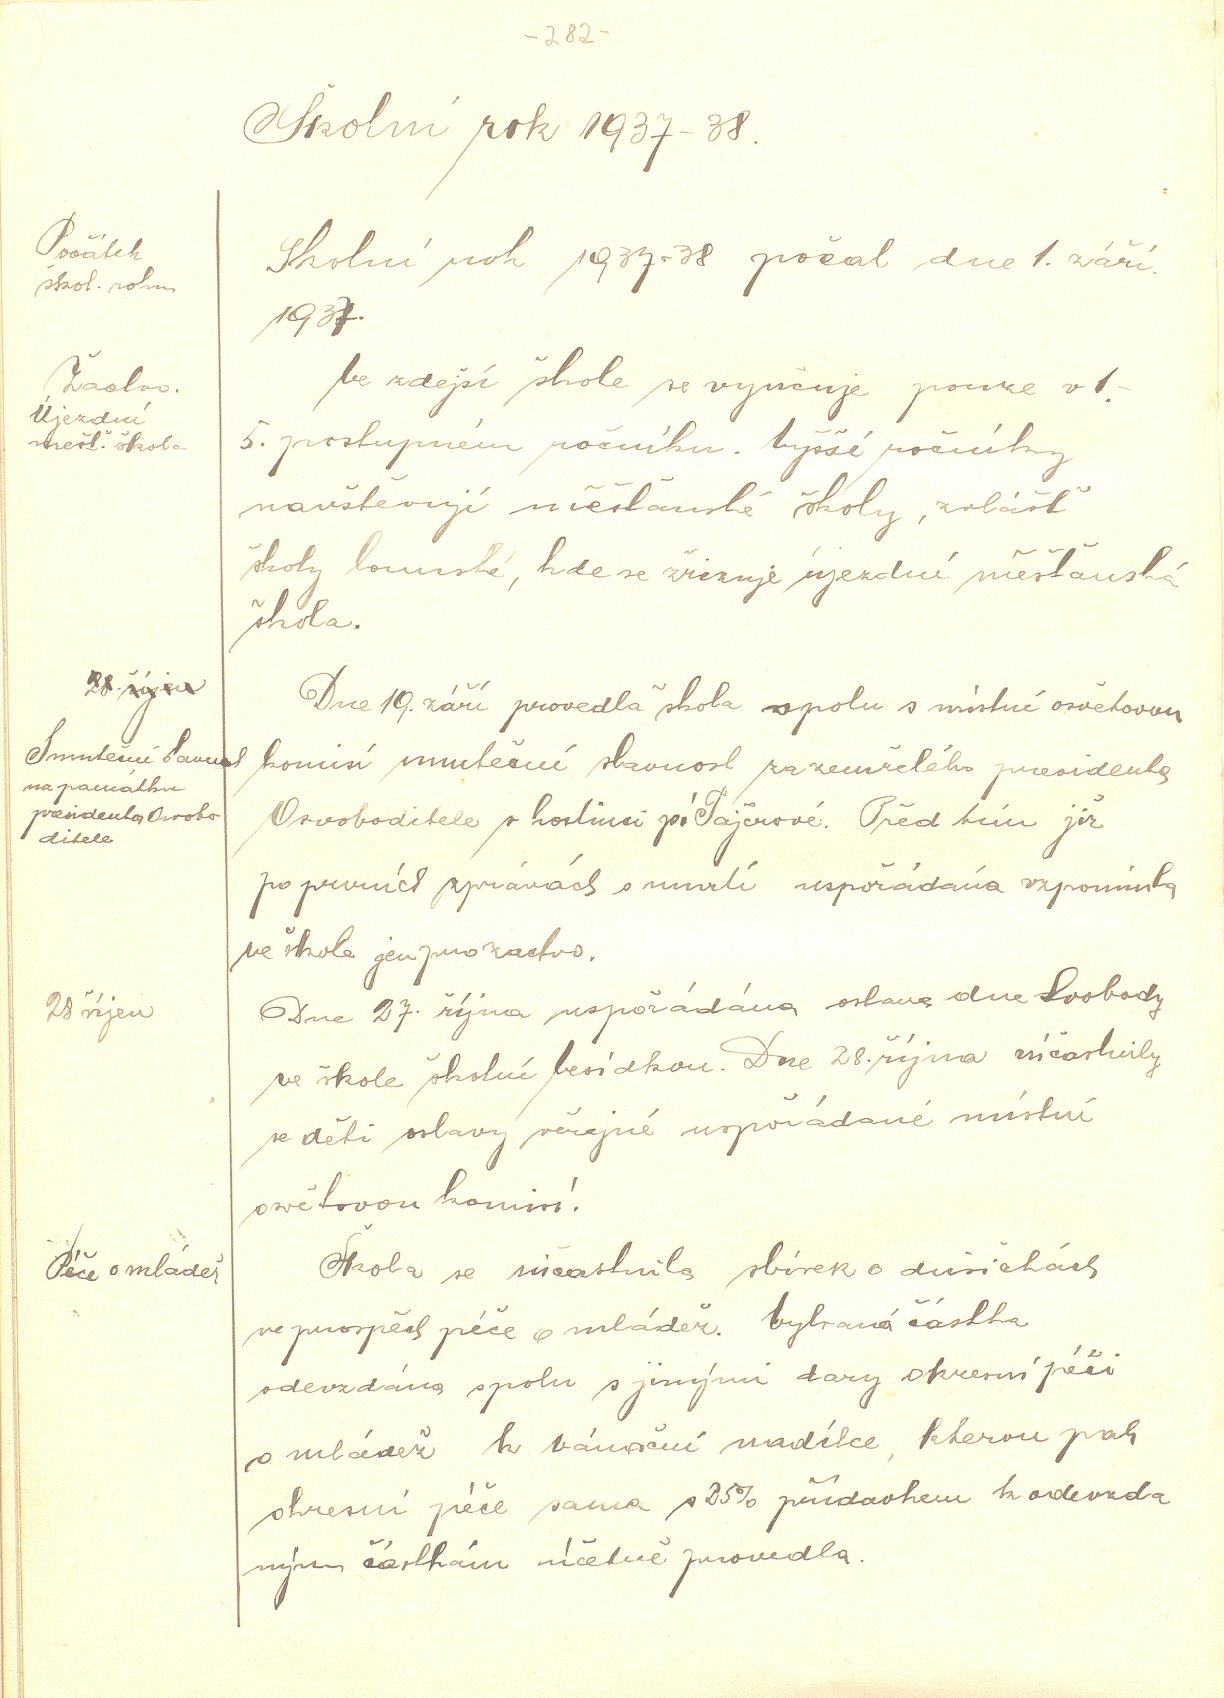 -282-
Školní rok 1937-38.
Počátek
škol. roku
Školní rok 1937-38 počal dne 1. září.
1937.
Žactvo.
Újezdní
mešť. škola
Ve zdejší škole se vyučuje pouze v 1.-
5. postupném ročníku. Vyšší ročníky
navštěvují měšťanské školy, zvlášť
školy lounské, kde se zřizuje újezdní měšťanská
škola.
28. říjen
Smuteční slavnost
na památku
presidenta Osvobo
ditele
Dne 19. září provedla škola spolu s místní osvětovou
komisí smuteční slavnost za zemřelého presidenta
Osvoboditele v hostinci pí Tajčrové. Před tím již
po prvních zprávách o úmrtí uspořádána vzpomínka
ve škole jen pro žactvo.
28 říjen
Dne 27. října uspořádána oslava dne Svobody
ve škole školní besídkou. Dne 28. října súčastnily
se děti oslavy veřejné uspořádané místní
osvětovou komisí.
Péče o mládež
Škola se súčastnila sbírek o dušičkách
ve prospěch péče o mládež. Vybraná částka
odevzdána spolu s jinými dary okresní péči
o mládež k vánoční nadílce, kterou pak
okresní péče sama s 25% přídavkem k odevzda
ným částkám účetně provedla.